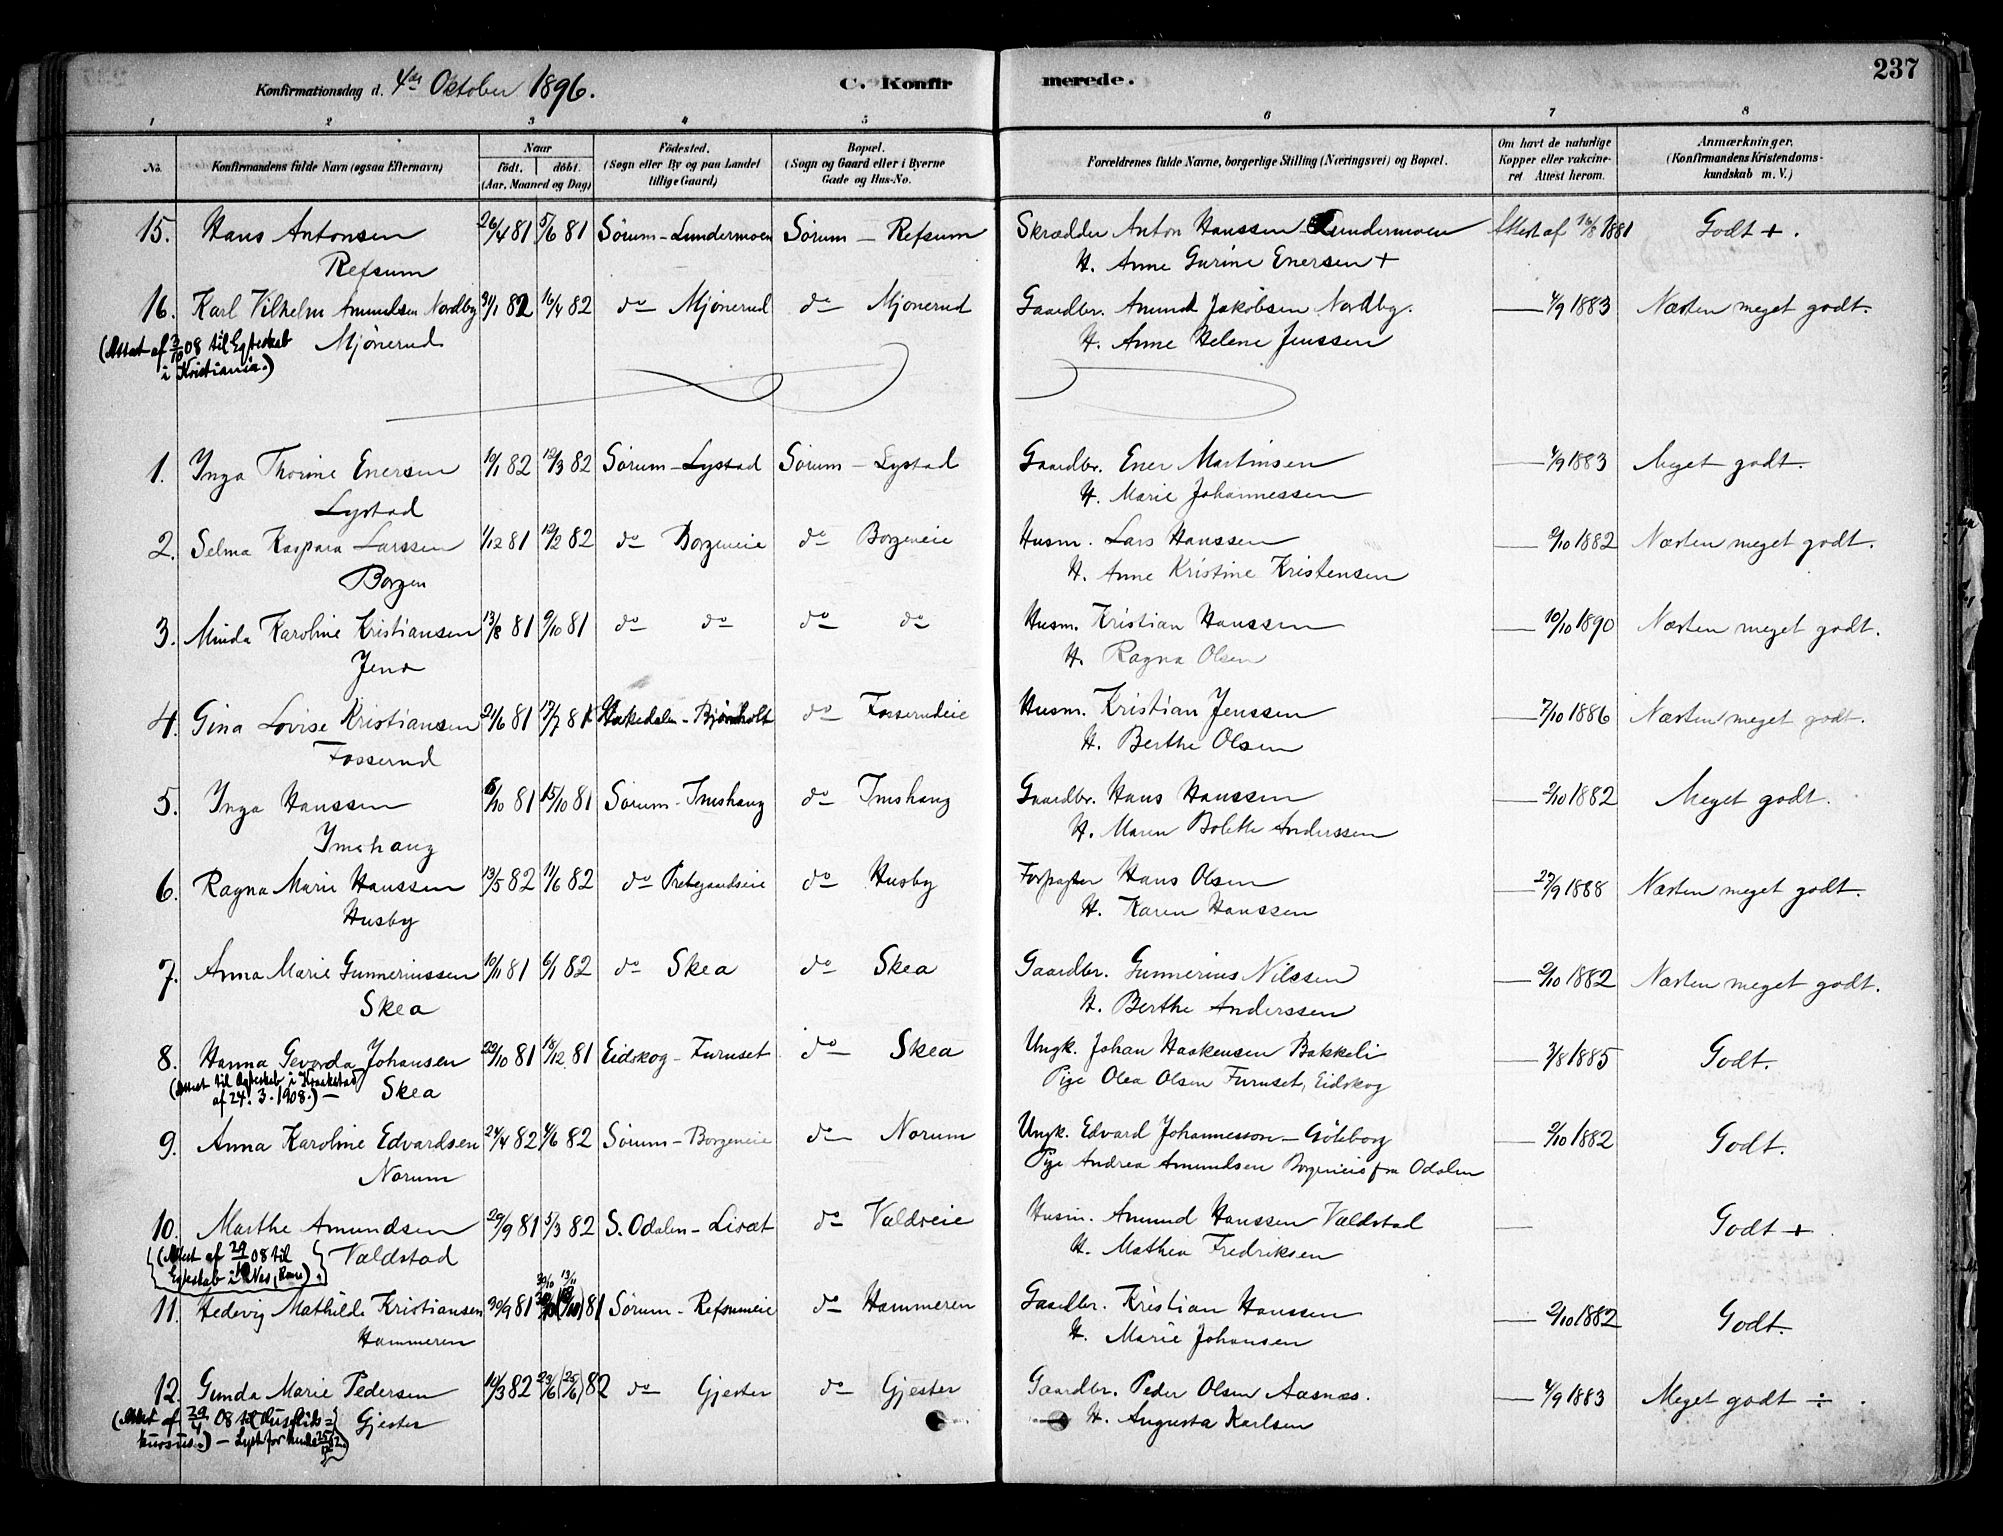 237
Konfirmationsdag d. 4de Oktober 1896.
C. Konfirmerede.
1 2 3 4 5 6 7 8
No. Konfirmandens fulde Navn (ogsaa Efternavn) Naar født. døbt. (Aar, Maaned og Dag) Fødested. (Sogn eller By og paa Landet tillige Gaard) Bopæl. (Sogn og Gaard eller i Byerne Gade og Hus-No. Forældrenes fulde Navne, borgerlige Stilling (Næringsvei) og Bopæl. Om havt de naturlige Kopper eller vakcineret Attest herom. Anmærkninger. (Konfirmandens Kristendomskundskab m. V.)
15. Hans Antonsen 26/4 81 5/6 81 Sørum - Lundermoen Sørum - Refsum Skrædder Anton Hanssen Lundermoen Attest af 16/8 1881 Godt + .
Refsum H. Anne Gurine Enersen +
16. Karl Vilhelm Amundsen Nordby 31/1 82 16/4 82 do Mjønerud do Mjønerud Gaardbr. Amund Jakobsen Nordby. — 4/9 1883 Næsten meget godt.
(Attest af 3/10 08 til Egteskab Mjønerud H. Anne Helene Jenssen
i Kristiania.)
1. Inga Thorine Enersen 10/1 82 12/3 82 Sørum - Lystad Sørum - Lystad Gaardbr. Ener Martinsen — 4/9 1883 Meget godt.
Lystad H. Marie Johannessen
2. Selma Kaspara Larssen 1/12 81 12/2 82 do Borgeneie do Borgeneie Husm. Lars Hanssen — 2/10 1882 Næsten meget godt.
Borgen H. Anne Kristine Kristensen
3. Minda Karoline Kristiansen 13/8 81 9/10 81 do do do do Husm. Kristian Hanssen — 10/10 1890 Næsten meget godt.
H. Ragna Olsen
4. Gina Lovise Kristiansen 21/6 81 17/7 81 Hakedalen - Bjørnholt do Fosserudeie Husm. Kristian Jenssen — 7/10 1886 Næsten meget godt.
Fosserud H. Berthe Olsen
5. Inga Hanssen 8/10 81 15/10 81 Sørum - Imshaug do Imshaug Gaardbr. Hans Hanssen — 2/10 1882 Meget godt.
Imshaug H. Maren Bolette Anderssen
6. Ragna Marie Hanssen 13/5 82 11/6 82 do Prestegaardseie do Husby Forpagter Hans Olsen — 27/9 1888 Næsten meget godt.
Husby H. Karen Hanssen
7. Anna Marie Gunneriussen 10/11 81 6/1 82 do Skea do Skea Gaardbr. Gunnerius Nilssen — 2/10 1882 Næsten meget godt.
Skea H. Berthe Anderssen
8. Hanna Gevarda Johansen 22/10 81 18/12 81 Eidskog - Furuset do Skea Ungk. Johan Haakensen Bakkeli — 3/8 1885 Godt.
(Attest til Egteskab i Kraakstad Skea Pige Olea Olsen Furuset, Eidskog
af 24. 3. 1908.) —
9. Anna Karoline Edvardsen 24/4 82 4/6 82 Sørum - Borgeneie do Norum Ungk. Edvard Johannesson - Göteborg — 2/10 1882 Godt.
Norum Pige Andrea Amundsen Borgeneie fra Odalen
10. Marthe Amundsen 29/9 81 5/3 82 S. Odalen - Liset do Valdseie Husm. Amund Hanssen Valdstad — Godt +
(Attest af 29/10 08 til Valdstad H. Mathea Fredriksen
Egteskab i Nes, Rom.)
30/10 13/11
11. Hedevig Mathilde Kristiansen 30/9 81 81 Sørum - Refsumeie do Hammeren Gaardbr. Kristian Hanssen — 2/10 1882 Godt.
Hammeren H. Marie Johansen
12. Gunda Marie Pedersen 10/3 82 23/6 (25/6) 82 do Gjester do Gjester Gaardbr. Peder Olsen Aasnæs. — 4/9 1883 Meget godt ÷ .
(Attest af 29/4 08 til Husflids= Gjester H. Augusta Karlsen
kursus.) —